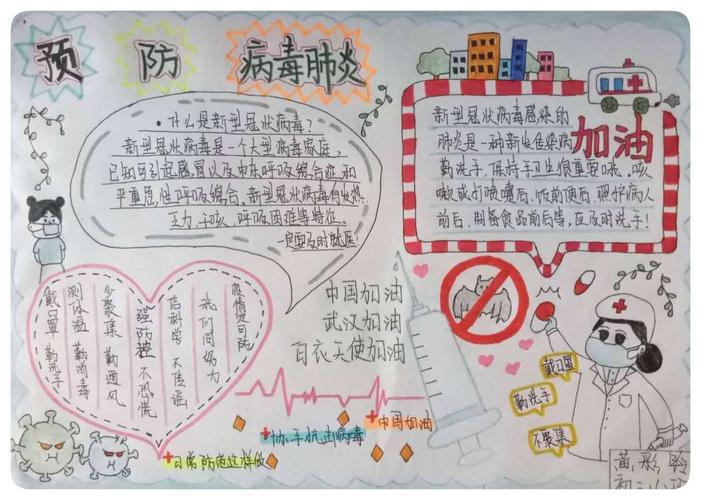 预 防 病毒肺炎
·什么是新型冠状病毒?
新型冠状病毒是一个大型病毒家庭,
已知可引起感冒以及中东呼吸综合症和
严重急性呼吸综合。新型冠状病毒有发热、
乏力、干咳、呼吸困难等特征。
一定要及时就医!
新型冠状病毒感染的
肺炎是一种新发传染病
加油
勤洗手,保持手卫生很重要哦。咳
嗽或打喷嚏后、饭前便后、照护病人
前后、制备食品前后等,应及时洗手!
疫情是可防
我们同努力
信科学 不传谣
强防控 不恐慌
少聚集 勤通风
测体温 勤消毒
戴口罩 勤洗手
中国加油
武汉加油
白衣天使加油
中国加油
协手抗击病毒
日常防范这样做
戴口罩
勤洗手
不聚集
黄彩